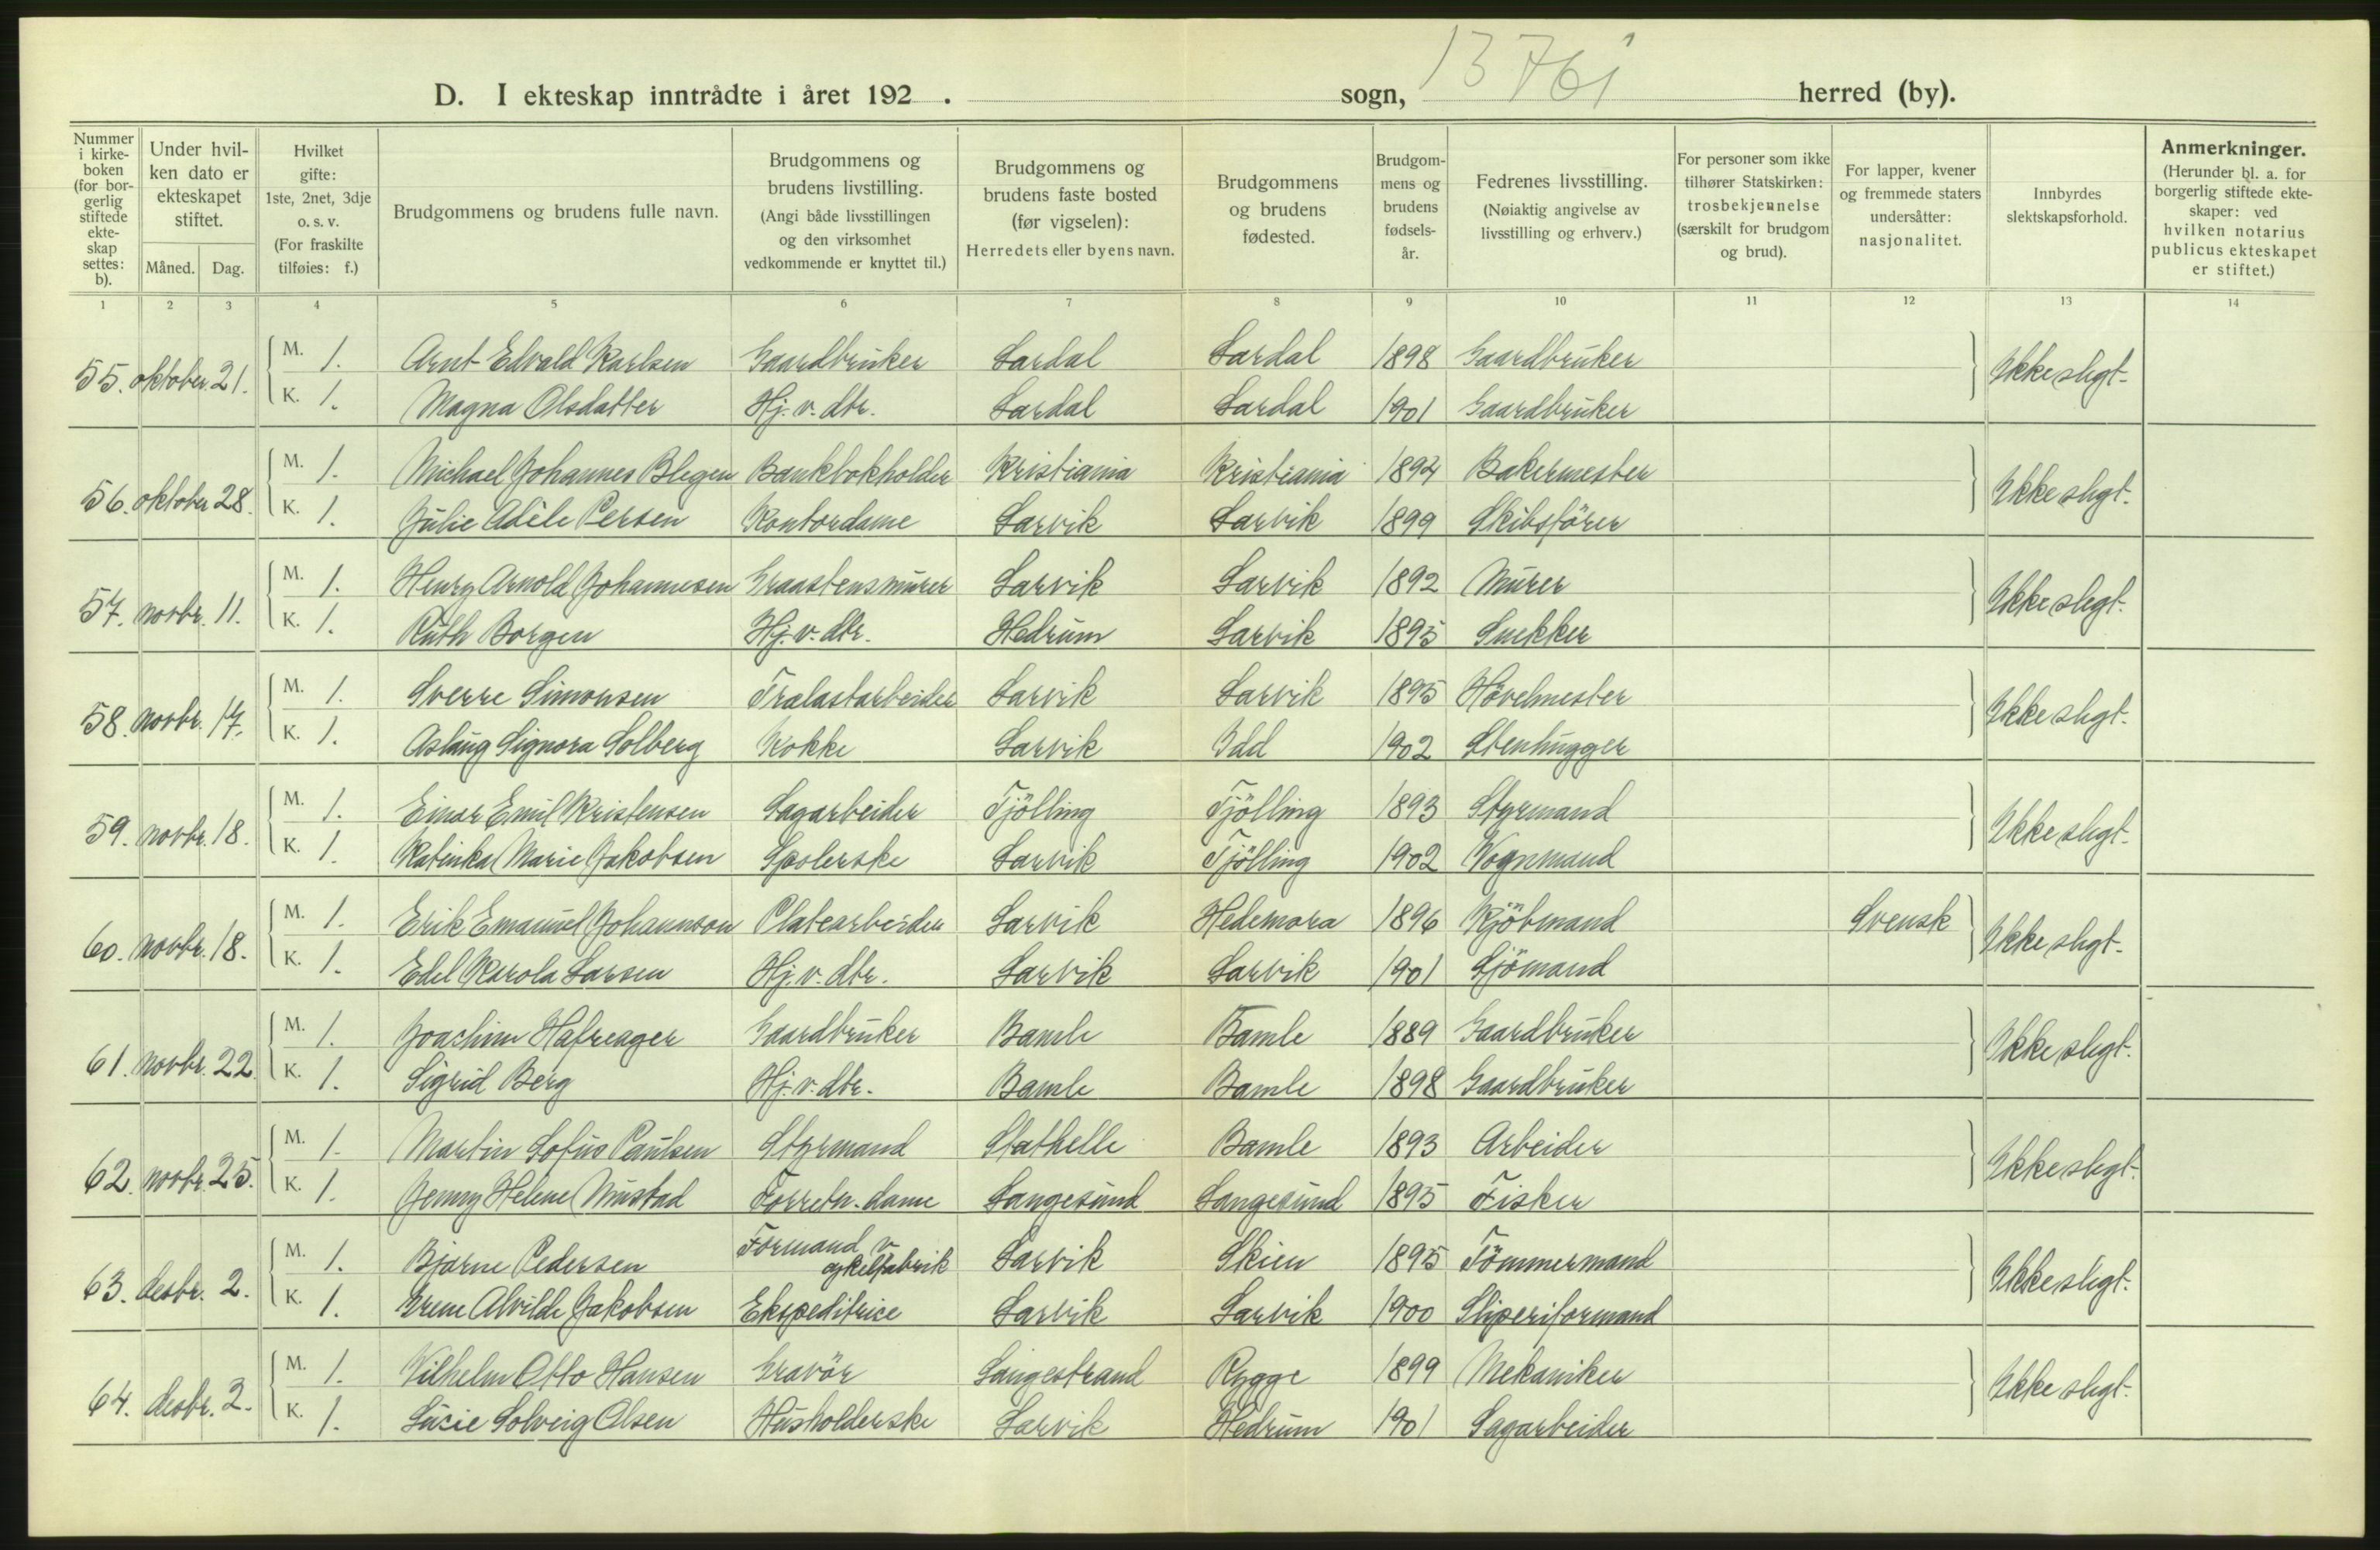 13761
D. I ekteskap inntrådte i året 192 . sogn, herred (by).
Nummer i kirke-boken (for bor-gerlig stiftede ekte-skap settes: b).
Under hvil-ken dato er ekteskapet stiftet.
Måned. Dag.
Hvilket gifte: 1ste, 2net, 3dje o. s. v. (For fraskilte tilføies: f.)
Brudgommens og brudens fulle navn.
Brudgommens og brudens livstilling. (Angi både livsstillingen og den virksomhet vedkommende er knyttet til.)
Brudgommens og brudens faste bosted (før vigselen): Herredets eller byens navn.
Brudgommens og brudens fødested.
Brudgom-mens og brudens fødsels-år.
Fedrenes livsstilling. (Nøiaktig angivelse av livsstilling og erhverv.)
For personer som ikke tilhører Statskirken: trosbekjennelse (særskilt for brudgom og brud).
For lapper, kvener og fremmede staters undersåtter: nasjonalitet.
Innbyrdes slektskapsforhold.
Anmerkninger. (Herunder bl. a. for borgerlig stiftede ekte-skaper: ved hvilken notarius publicus ekteskapet er stiftet.)
1 2 3 4 5 6 7 8 9 10 11 12 13 14
55. oktober 21. M. 1. Arnt Edvald Karlsen Gaardbruker Lardal Lardal 1898 Gaardbruker Ikke slegt.
K. 1. Magna Olsdatter Hj. v. dtr. Lardal Lardal 1901 Gaardbruker
56. oktober 28. M. 1. Michael Johannes Blegen Bankbokholder Kristiania Kristiania 1894 Bakermester Ikke slegt.
K. 1. Julie Adèle Persen Kontordame Larvik Larvik 1899 Skibsförer
57. novbr. 11. M. 1. Henry Arnold Johannesen Graastensmurer Larvik Larvik 1892 Murer Ikke slegt.
K. 1. Ruth Borgen Hj. v. dtr. Hedrum Larvik 1895 Snekker
58. novbr. 17. M. 1. Sverre Simonsen Trælastarbeider Larvik Larvik 1895 Hövelmester Ikke slegt.
K. 1. Aslaug Signora Solberg Kokke Larvik Idd 1902 Stenhugger
59. novbr. 18. M. 1. Einar Emil Kristensen Sagarbeider Tjölling Tjölling 1893 Styrmand Ikke slegt.
K. 1. Katinka Marie Jakobsen Spolerske Larvik Tjölling 1902 Vognmand
60. novbr. 18. M. 1. Erik Emanuel Johannson Platearbeider Larvik Hedemora 1896 Kjöbmand Svensk Ikke slegt.
K. 1. Edel Karola Larsen Hj. v. dtr. Larvik Larvik 1901 Sjömand
61. novbr. 22. M. 1. Joachim Hafreager Gaardbruker Bamle Bamle 1889 Gaardbruker Ikke slegt.
K. 1. Sigrid Berg Hj. v. dtr. Bamle Bamle 1898 Gaardbruker
62. novbr. 25. M. 1. Martin Sofus Paulsen Styrmand Stathelle Bamle 1893 Arbeider Ikke slegt.
K. 1. Jenny Helene Mustad Forretn. dame Langesund Langesund 1895 Fisker
63. desbr. 2. M. 1. Bjarne Pedersen Formand v. cykelfabrik Larvik Skien 1895 Tömmermand Ikke slegt.
K. 1. Irene Alvilde Jakobsen Ekspeditrice Larvik Larvik 1900 Sliperiformand
64. desbr. 2. M. 1. Vilhelm Otto Hansen Gravör Langestrand Rygge 1899 Mekaniker Ikke slegt.
K. 1. Lucie Solveig Olsen Husholderske Larvik Hedrum 1901 Sagarbeider